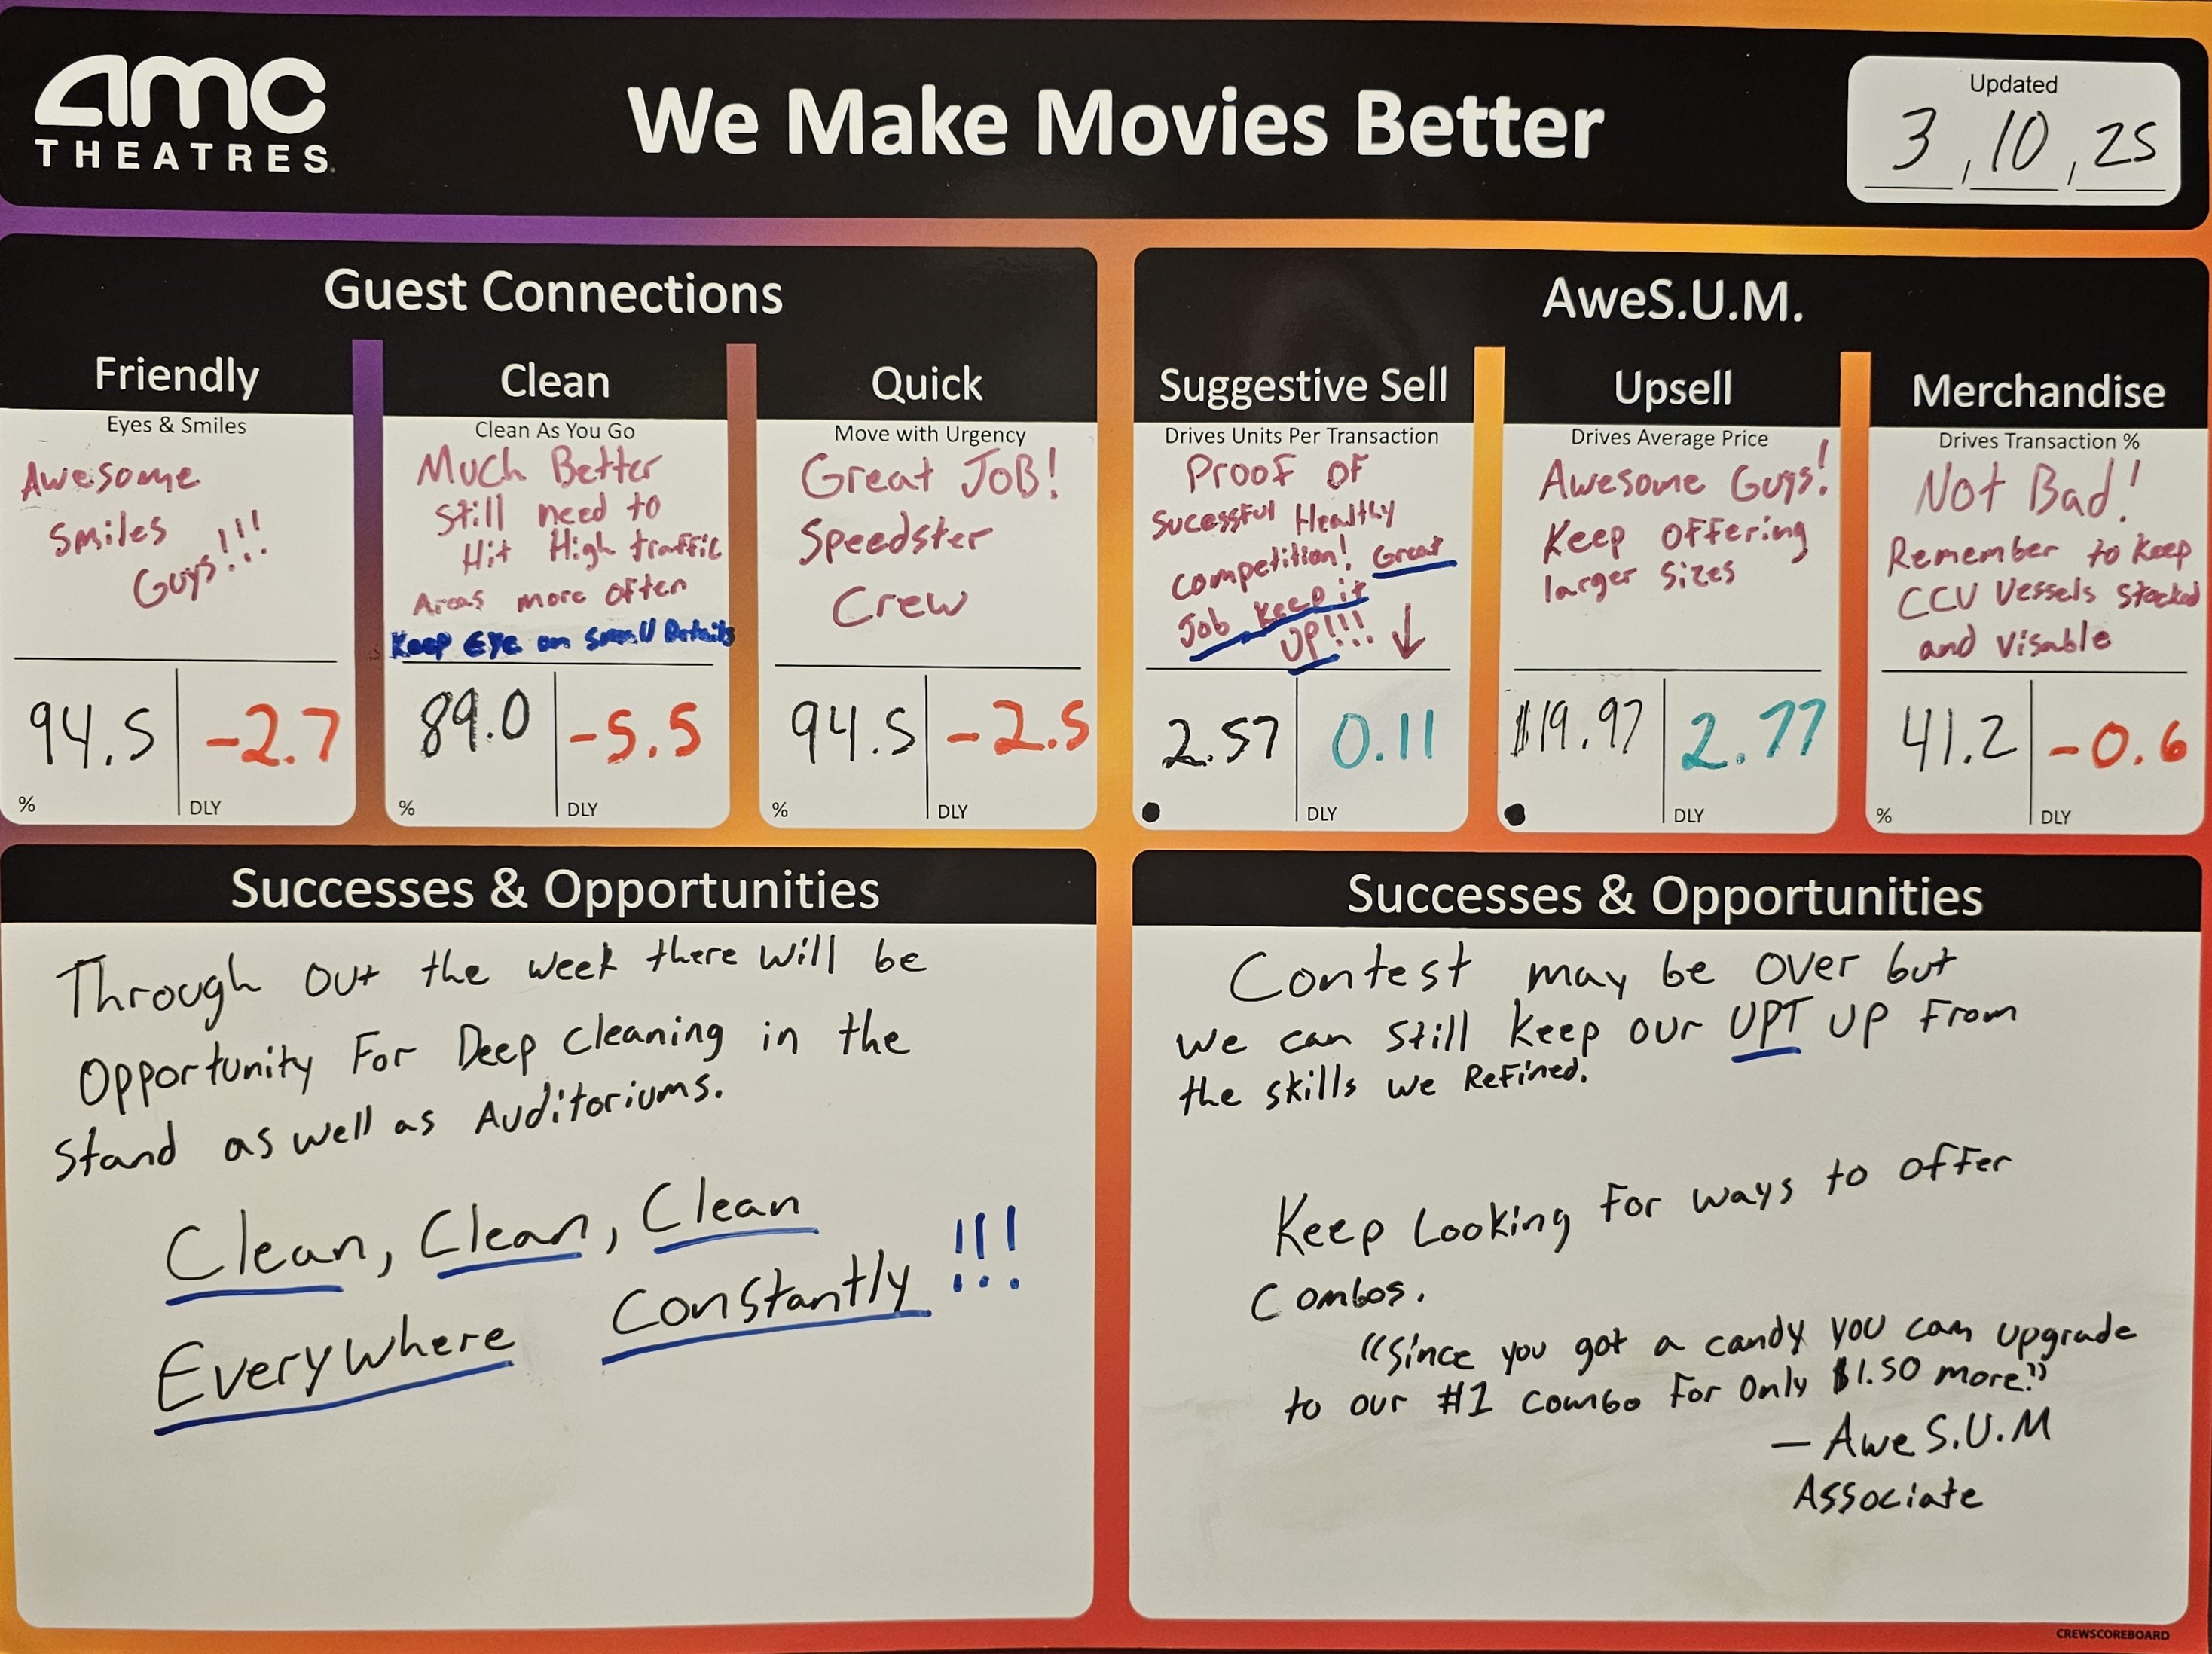 amc
THEATRES
We Make Movies Better
Updated
3, 10, 25
Guest Connections
Friendly
Eyes & Smiles
Awesome
Smiles
Guys!!!
94.5
-2.7
%
DLY
Clean
Clean As You Go
Much Better
still need to
Hit High traffic
Areas more often
Keep Eye on Small Details
89.0
-5.5
%
DLY
Quick
Move with Urgency
Great JOB!
Speedster
Crew
94.5
-2.5
%
DLY
AweS.U.M.
Suggestive Sell
Drives Units Per Transaction
Proof of
Sucessful Healthy
competition! Great
Job Keep it
UP!!!
2.57
0.11
DLY
Upsell
Drives Average Price
Awesome Guys!
Keep offering
larger sizes
$19.97
2.77
DLY
Merchandise
Drives Transaction %
Not Bad!
Remember to Keep
CCV Vessels stocked
and visable
41.2
-0.6
%
DLY
Successes & Opportunities
Through out the week there will be
Opportunity For Deep cleaning in the
Stand as well as Auditoriums.
Clean, Clean, Clean
Everywhere Constantly !!!
Successes & Opportunities
Contest may be over but
we can still keep our UPT up from
the skills we Refined.
Keep Looking for ways to offer
Combos.
"Since you got a candy you can upgrade
to our #1 combo for only $1.50 more."
- Awe S.U.M
Associate
CREWSCOREBOARD